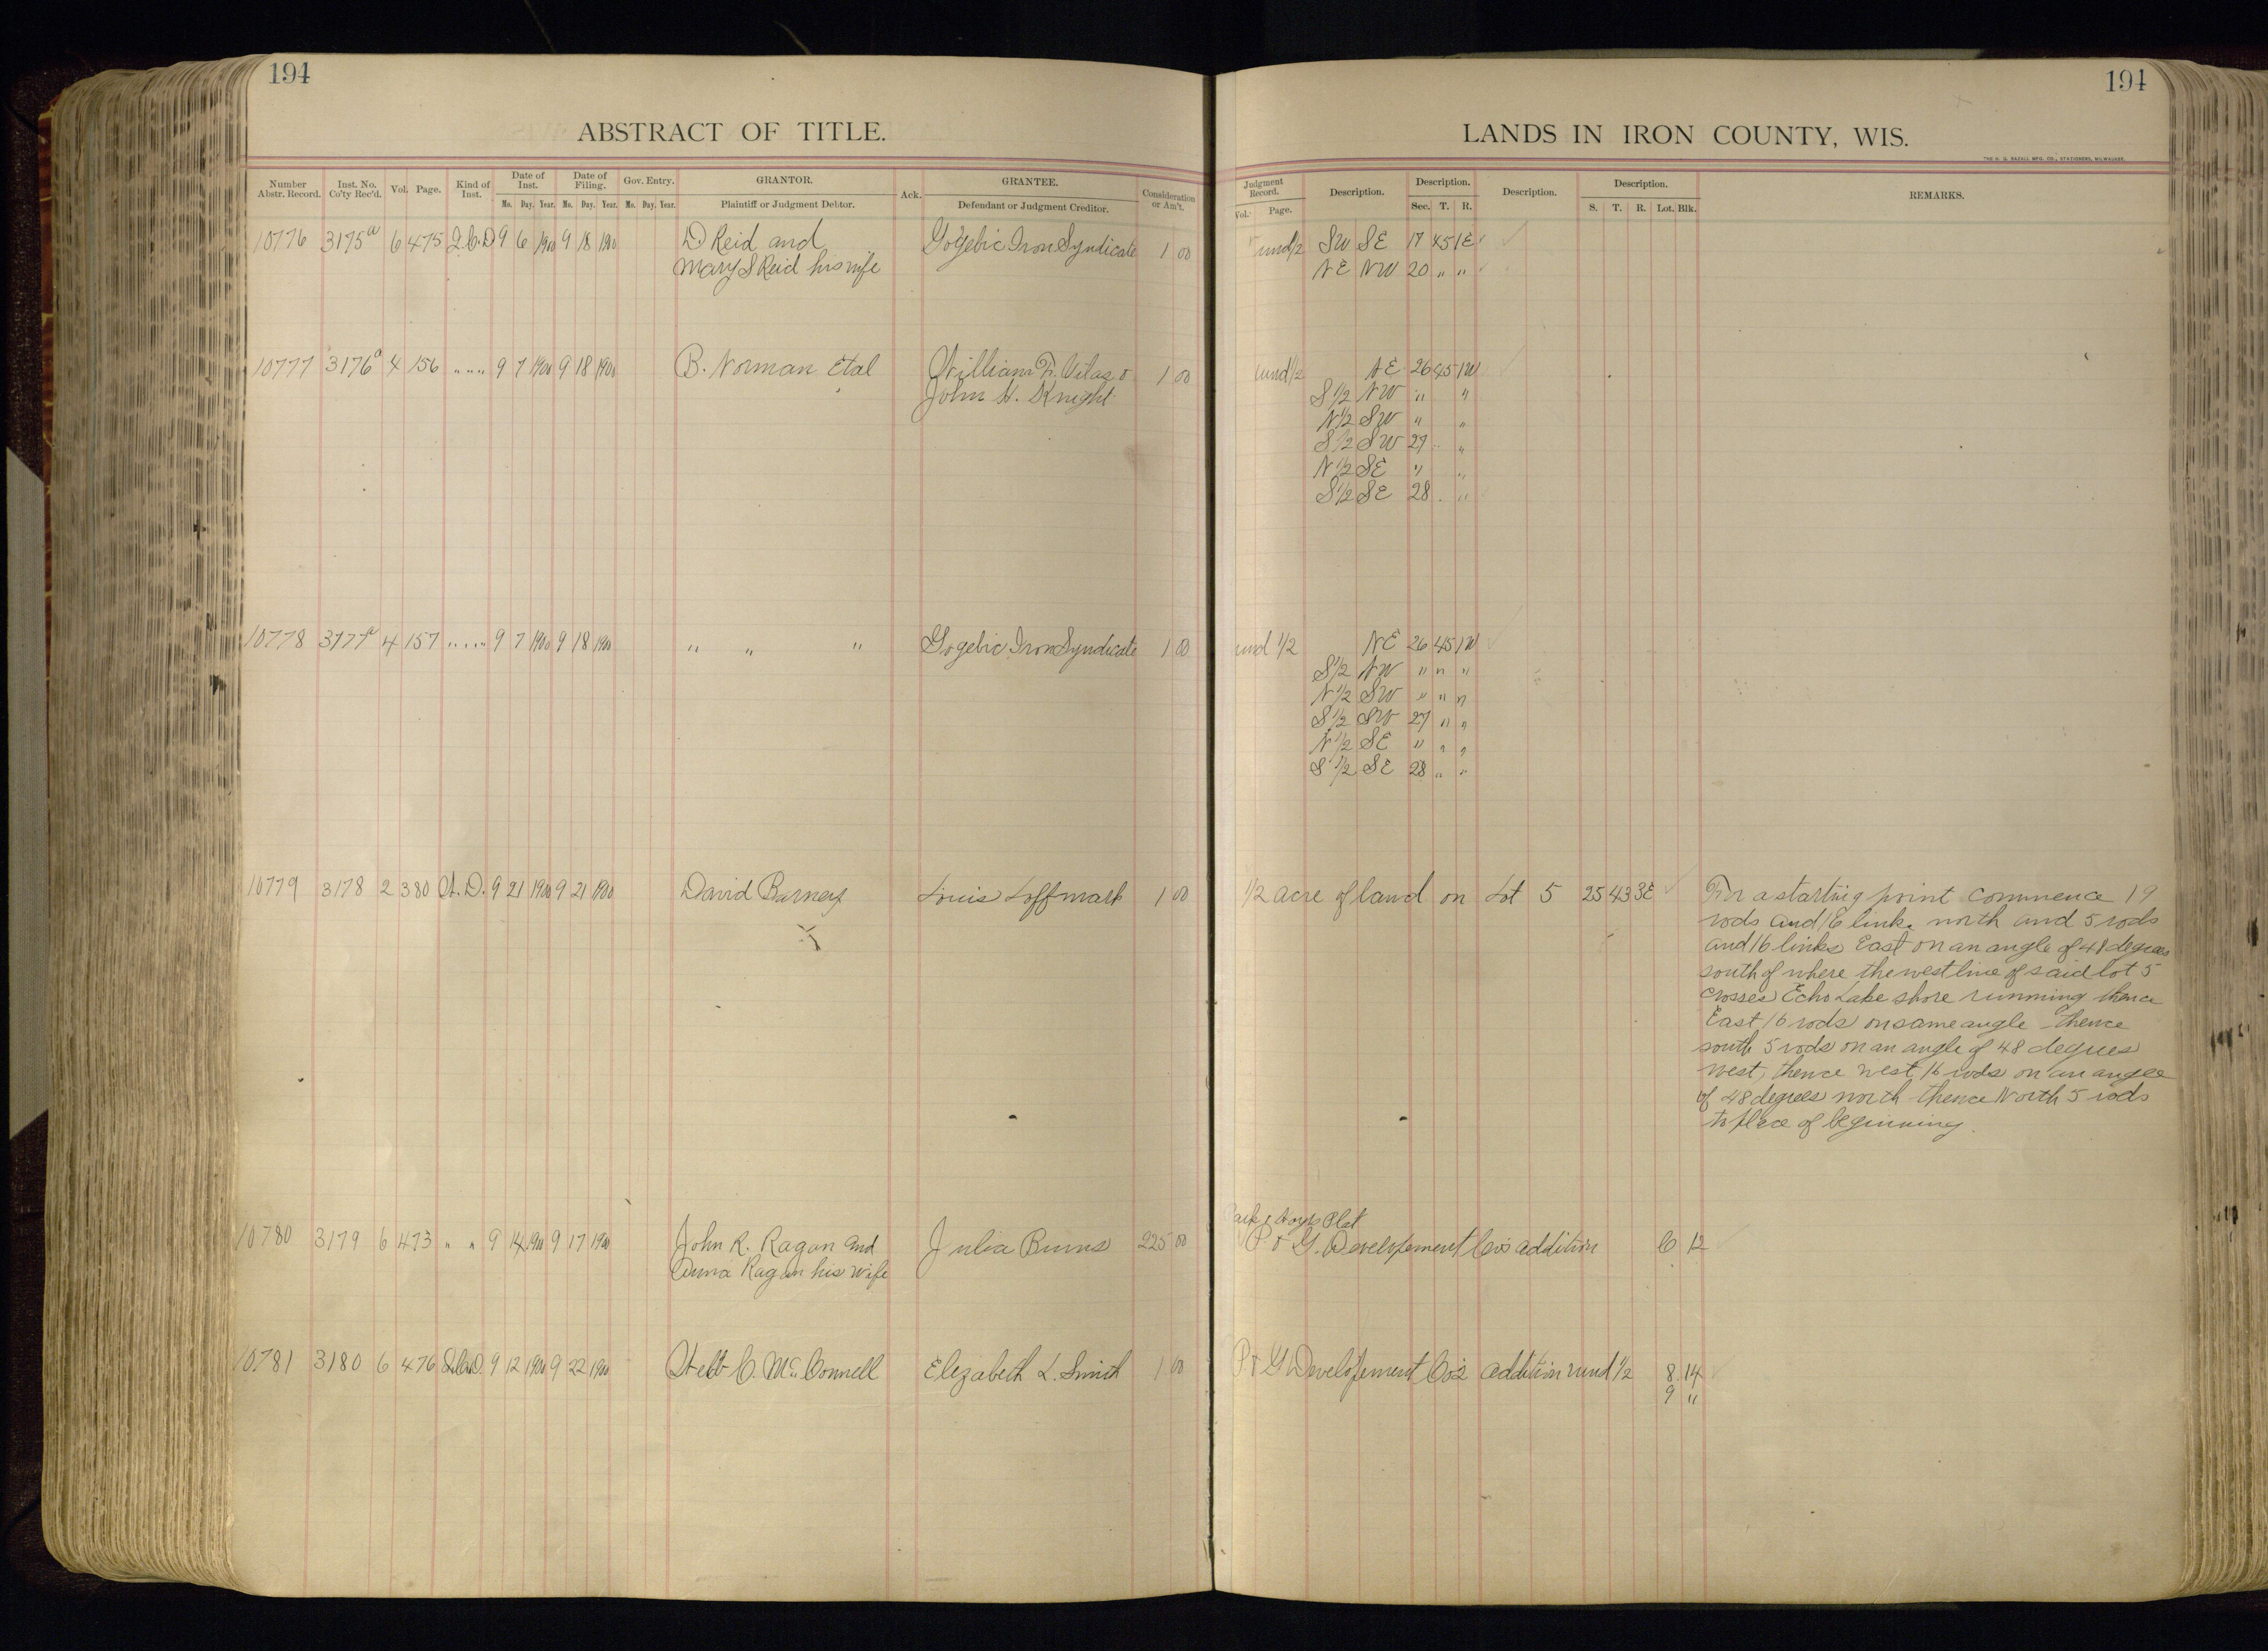 194
194
ABSTRACT OF TITLE.
LANDS IN IRON COUNTY, WIS.
THE H. G. RAZALL MFG. CO., STATIONERS, MILWAUKEE.
Number Abstr. Record. Inst. No. Co'ty Rec'd. Vol. Page. Kind of Inst. Date of Inst. Mo. Day. Year. Date of Filing. Mo. Day. Year. Gov. Entry. Mo. Day. Year. GRANTOR. Plaintiff or Judgment Debtor. Ack. GRANTEE. Defendant or Judgment Creditor. Consideration or Am't.
Judgment Record. Vol. Page. Description. Description. Sec. T. R. Description. Description. S. T. R. Lot. Blk. REMARKS.
10776 3175a 6 475 Q.C.D 9 6 1900 9 18 1900 D Reid and Gogebic Iron Syndicate 1 00 und 1/2 SW SE 17 45 1E
Mary S Reid his wife NE NW 20 " "
10777 3176a 4 156 " " " 9 7 1900 9 18 1900 B. Norman Etal William F. Vilas & 1 00 und 1/2 NE 26 45 1W
John H. Knight S 1/2 NW " "
N 1/2 SW " "
S 1/2 SW 27 " "
N 1/2 SE " "
S 1/2 SE 28 " "
10778 3177a 4 157 " " " 9 7 1900 9 18 1900 " " " Gogebic Iron Syndicate 1 00 und 1/2 NE 26 45 1W
S 1/2 NW " " "
N 1/2 SW " " "
S 1/2 SW 27 " "
N 1/2 SE " " "
S 1/2 SE 28 " "
10779 3178 2 380 W.D. 9 21 1900 9 21 1900 David Barney Louis Loffmark 1 00 1/2 acre of land on Lot 5 25 43 3E For a starting point commence 19
rods and 16 links north and 5 rods
and 16 links East on an angle of 48 degrees
south of where the west line of said lot 5
crosses Echo Lake shore running thence
East 16 rods on same angle thence
south 5 rods on an angle of 48 degrees
west, thence west 16 rods on an angle
of 48 degrees north thence North 5 rods
to place of beginning.
Plat
10780 3179 6 473 " " 9 14 1900 9 17 1900 John R. Ragan and Julia Burns 225 00 P & G. Developement Co's addition 6 12
Anna Ragan his wife
10781 3180 6 476 9 12 1900 9 22 1900 C. McConnell Elizabeth L. Smith 1 00 P & G Developement Co's addition und 1/2 8 14
9 "